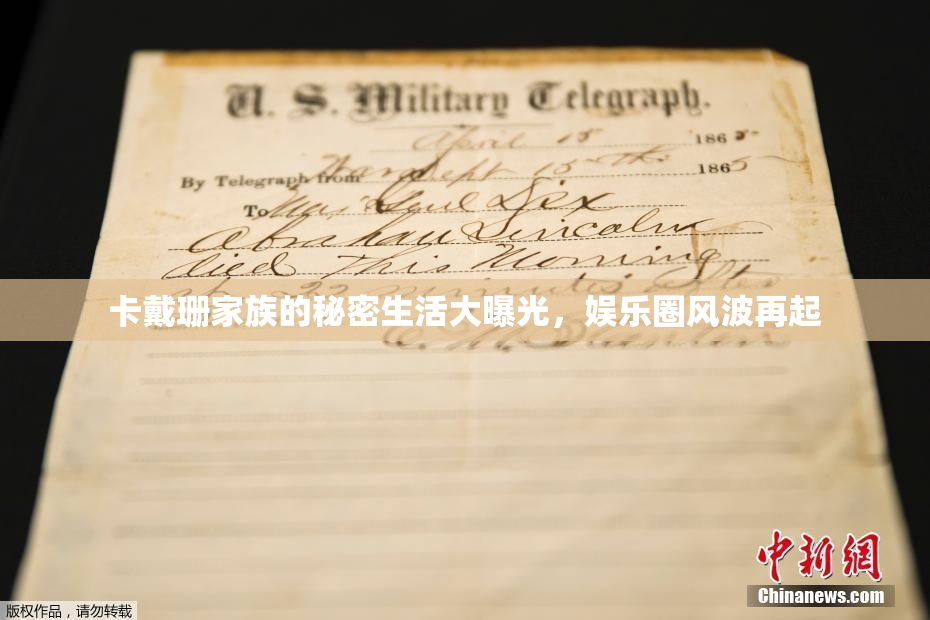 U. S. Military Telegraph.
April 15 1865
By Telegraph from War Dept 15th 1865
To Maj Genl Dix
Abraham Lincoln
died This Morning
at 22 minutes after
卡戴珊家族的秘密生活大曝光，娱乐圈风波再起
E. M. Stanton
中新网
Chinanews.com
版权作品，请勿转载